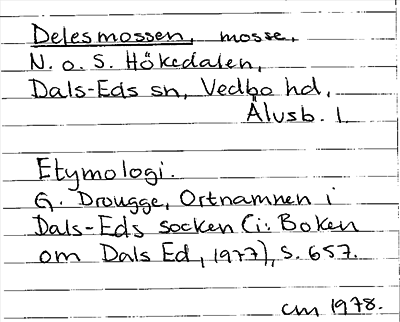 Delesmossen, mosse,
N. o. S. Hökedalen,
Dals-Eds sn, Vedbo hd,
Älvsb. l
Etymologi.
G. Drougge, Ortnamnen i
Dals-Eds socken (i: Boken
om Dals Ed, 1977), s. 657.
cm 1978.